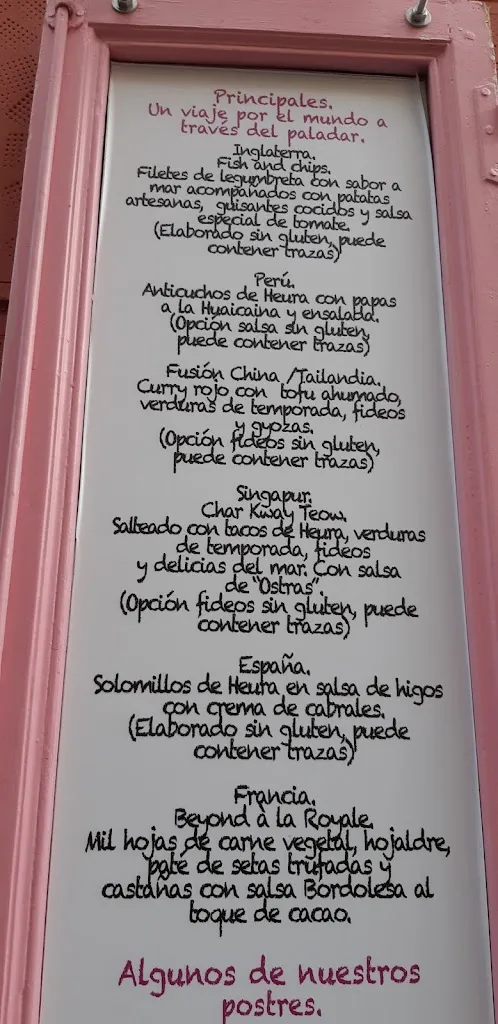 Principales.
Un viaje por el mundo a
través del paladar.
Inglaterra.
Fish and chips.
Filetes de legumbreta con sabor a
mar acompañados con patatas
artesanas, guisantes cocidos y salsa
especial de tomate.
(Elaborado sin gluten, puede
contener trazas)
Perú.
Anticuchos de Heura con papas
a la Huaicaina y ensalada.
(Opción salsa sin gluten,
puede contener trazas)
Fusión China /Tailandia.
Curry rojo con tofu ahumado,
verduras de temporada, fideos
y gyozas.
(Opción fideos sin gluten,
puede contener trazas)
Singapur.
Char Kway Teow.
Salteado con tacos de Heura, verduras
de temporada, fideos
y delicias del mar. Con salsa
de "Ostras".
(Opción fideos sin gluten, puede
contener trazas)
España.
Solomillos de Heura en salsa de higos
con crema de cabrales.
(Elaborado sin gluten, puede
contener trazas)
Francia.
Beyond à la Royale.
Mil hojas de carne vegetal, hojaldre,
paté de setas trufadas y
castañas con salsa Bordolesa al
toque de cacao.
Algunos de nuestros
postres.